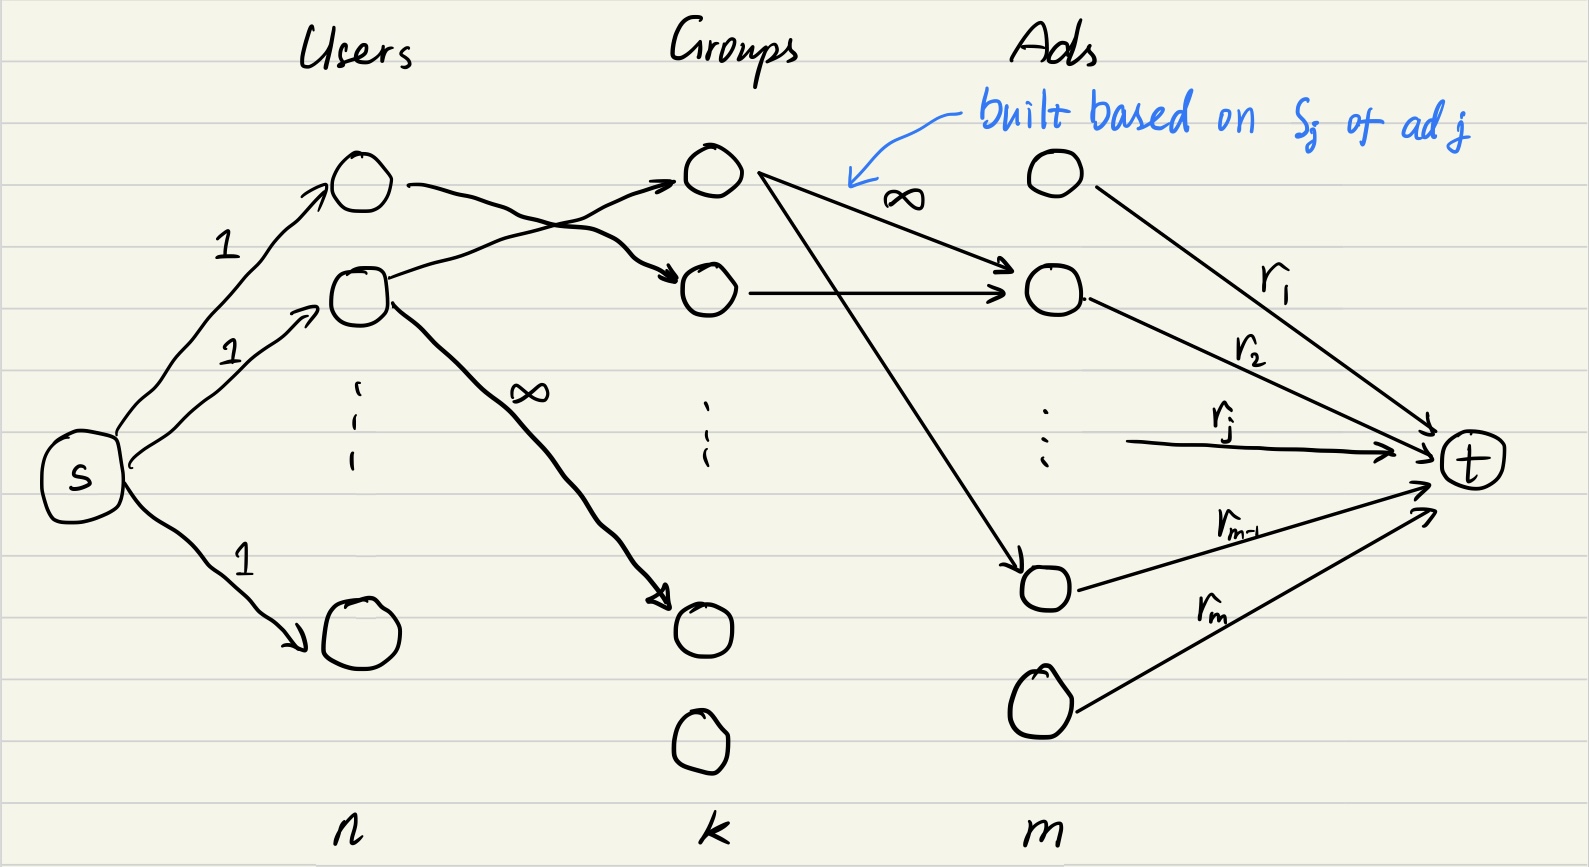 Users Groups Ads
built based on Sj of ad j
∞
1
r1
1
r2
∞
rj
s
t
rm-1
1
rm
n k m